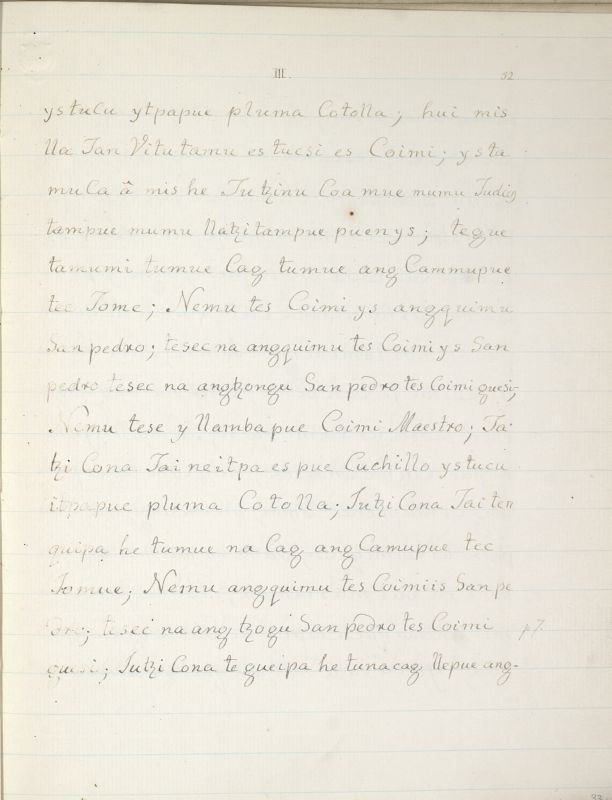 III.
52
ystucu ytpapue pluma Cotolla; hui mis
lla Tan Vitutamu es tucsi es Coimi; y sta
muCa â mis he Tutzinu Coa mue mumu Judios
tampue mumu llatzitampue puenys; teque
tamumi tumue Cag tumue ang Cammupue
tec Tome; Nemu tes Coimi ys angquimu
San pedro; tesec na angquimu tes Coimi ys San
pedro tesec na angtzongu San pedro tes Coimi quesi;
Nemu tese y llambapue Coimi Maestro; Ja-
tzi Cona Tai neitpa es pue Cuchillo ystucu
itpapue pluma Cotolla; Jutzi Cona Tai ten
quipa he tumue na Cag ang Camupue tec
Tomue; Nemu angquimu tes Coimiis San pe
dro; tesec na ang tzogu San pedro tes Coimi
p7.
quesi; Jutzi Cona te queipa he tunacag llepue ang-
33